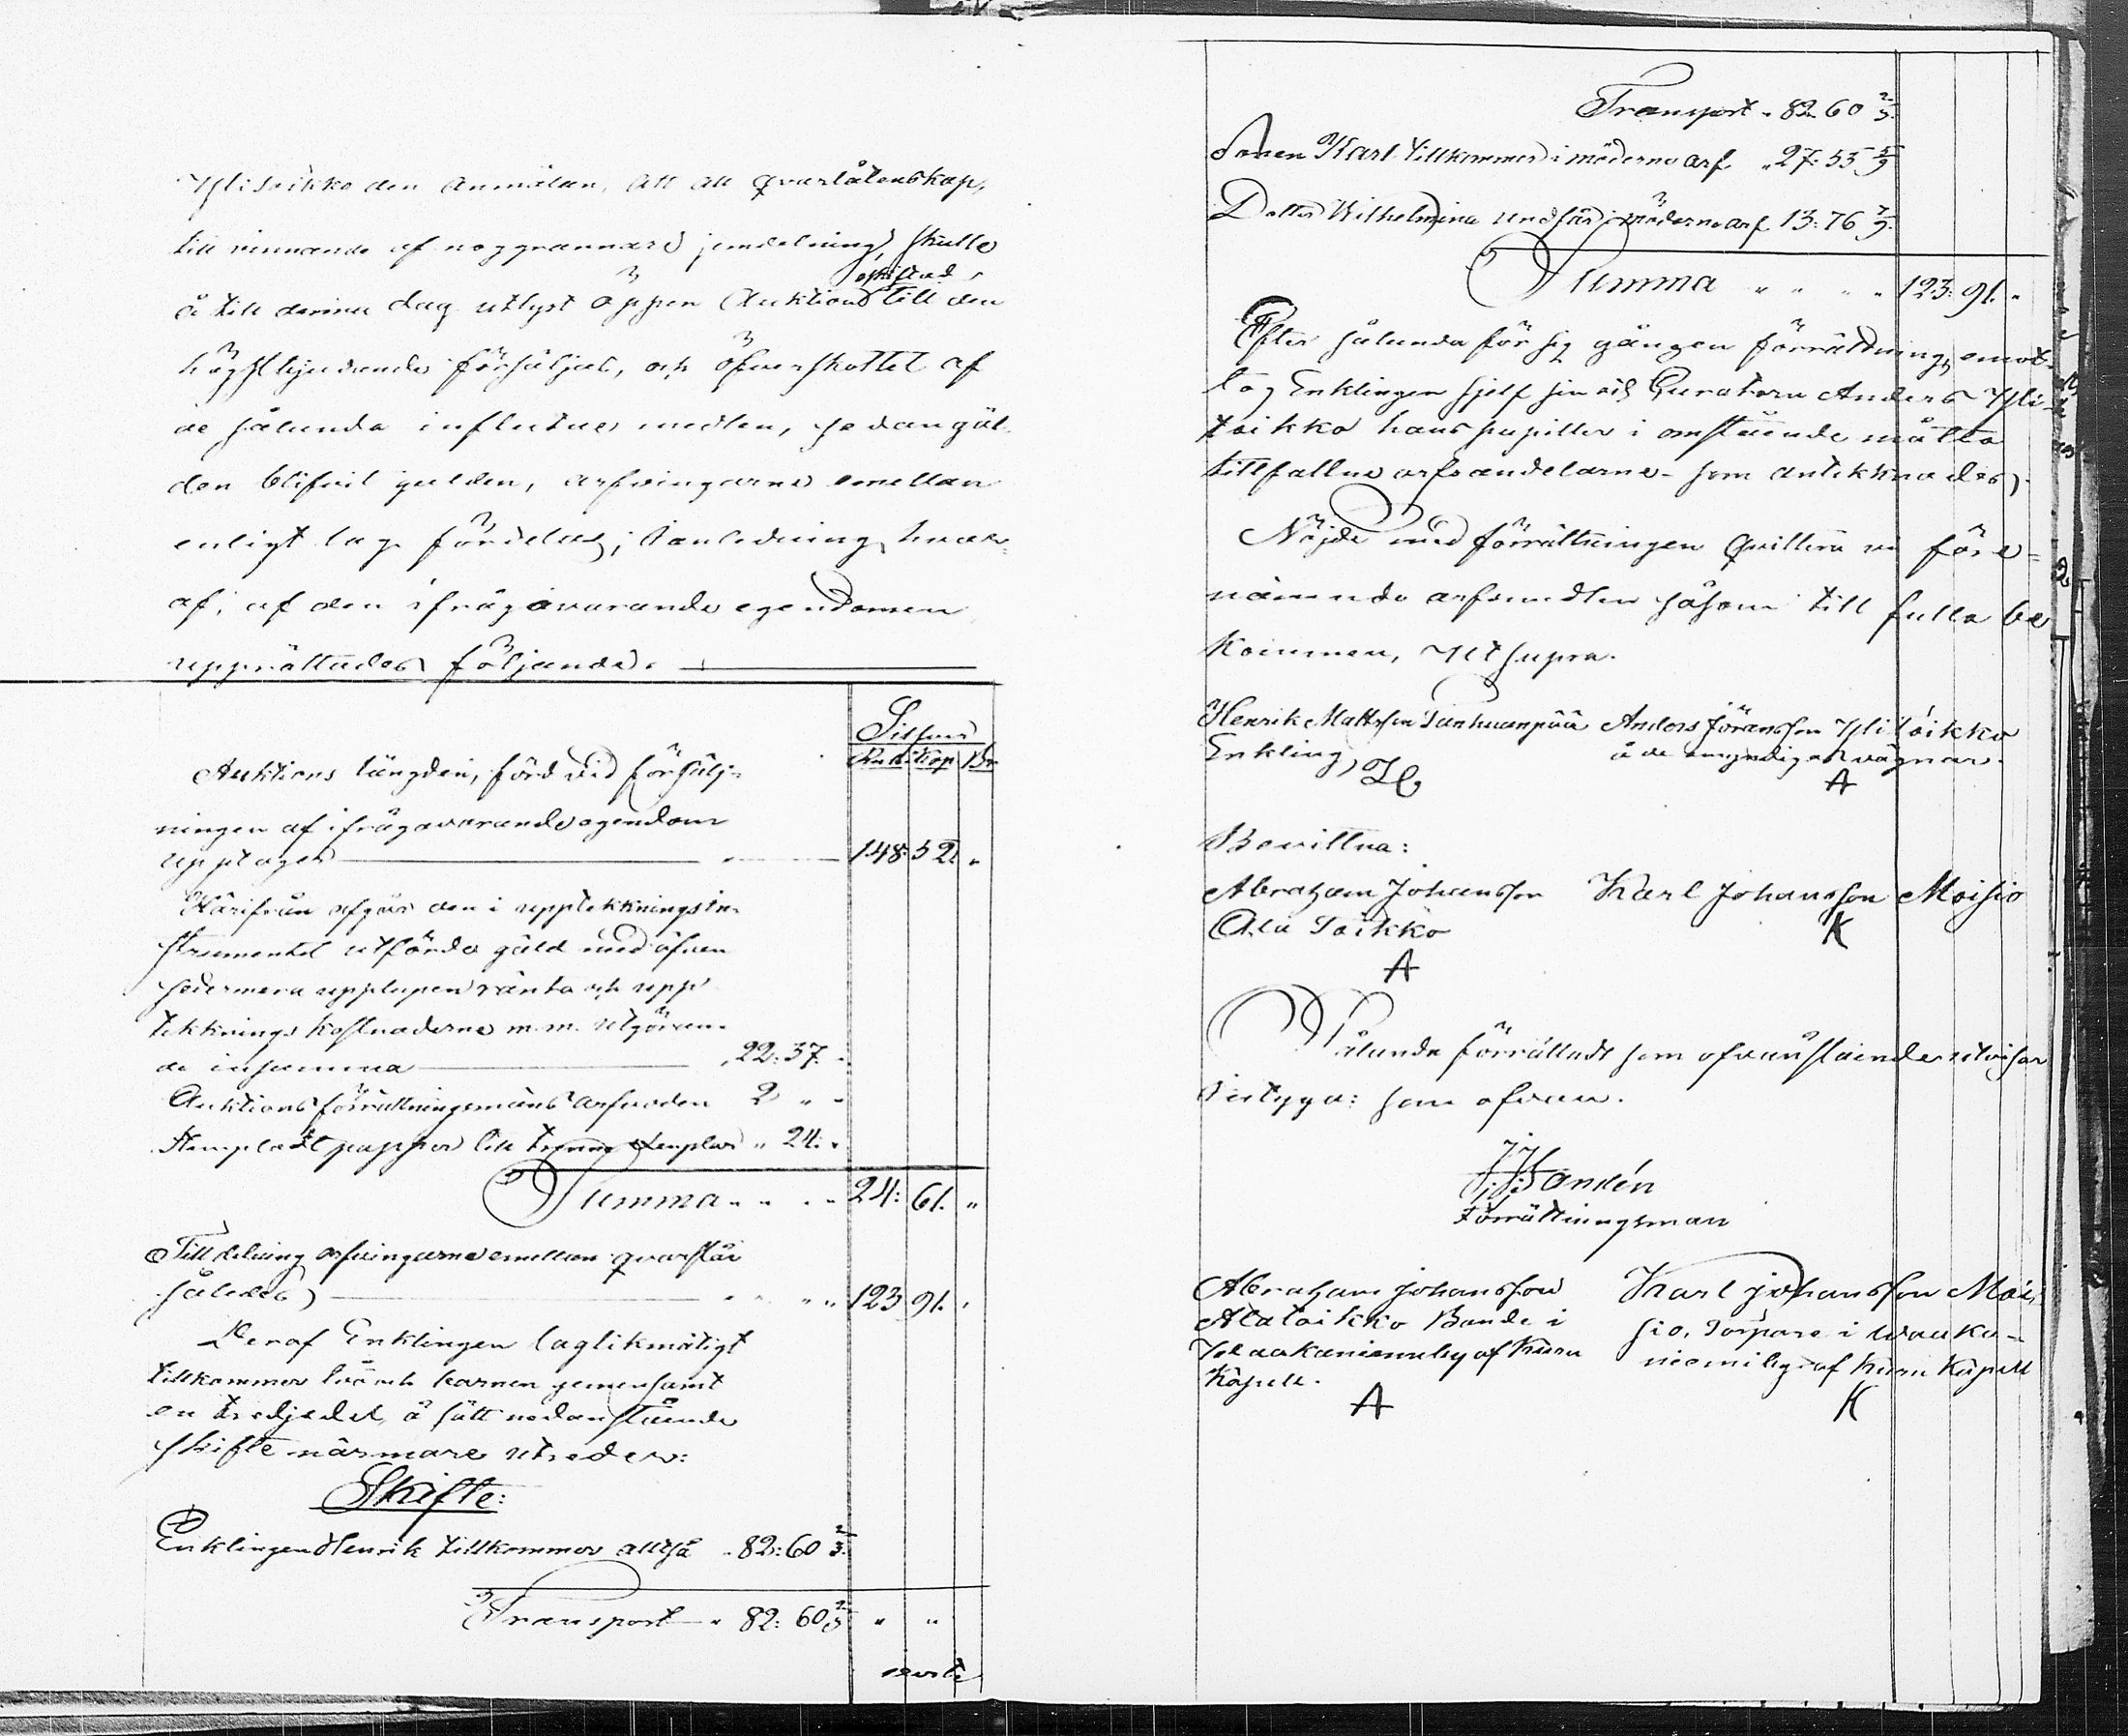 Ylitoikko den anmälan, att all qvarlåtenskap,
till vinnande af noggrannare jemdelning, skulle
å till denna dag utlyst öppen Auktion till den
högstbjudande försäljas, och öfverskottet af
de sålunda influtne medlen, sedan gäl-
den blifvit gulden, arfvingarne emellan
enligt lag fördelas; i anledning hvar-
af, af den ifrågavarande egendomen
upprättades följande:
Silfver
Rub. Kop. Br.
Auktions längden, förd vid försälj-
ningen af ifrågavarande egendom
upptager 148: 52. "
Härifrån afgår den i upptekknings in-
strumentet utförda gäld med äfven
sedermera upplupen ränta och upp-
tekknings kostnaderne m. m. utgöran-
de insumma 22: 37. "
Auktions förrättningsmans arfvoden 2 " "
Stempladt papper till exemplar " 24. "
Summa " " " 24: 61. "
Till delning arfvingarne emellan qvarstår
således " " " 123 91. "
Deraf Enklingen laglikmätigt
tillkommer två och barnen gemensamt
en tredjedel, å sätt nedanstående
skifte närmare utreder:
Skifte:
Enklingen Henrik tillkommer alltså " 82: 60 2/3.
Transport " 82: 60 2/3 " "
Transport " 82 60 2/3.
Sonen Karl tillkommer i möderne arf " 27: 53 5/9
Dotter Wilhelmina undfår i möderne arf 13: 76 7/9.
Summa " " " " 123: 91. "
Efter sålunda för sig gången förrättning, emot-
tog Enklingen sjelf sin och Curatorn Anders Yli-
toikko hans pupiller i omstående måtto
tillfallne arfsandelarne - som antekknades.
Nöjde med förrättningen qvittera vi före-
nämnde arfsmedlen såsom till fullo be
kommen, Ut supra.
Henrik Mattsson Tanhuanpää Anders Göransson Ylitoikko
Enkling, å de omyndigas vägnar.
A
Bevittna:
Abraham Johansson Karl Johansson Moisio
Ala Toikko K
A
Sålunda förrättadt som ofvanstående utvisar
betyga: som ofvan.
Förrättningsman
Abraham Johansson Karl Johansson Moi-
Alatoikko Bonde i sio, Torpare i Waaka-
Waakaniemi by af Kuru niemi by af Kuru Kapell
Kapell. K
A